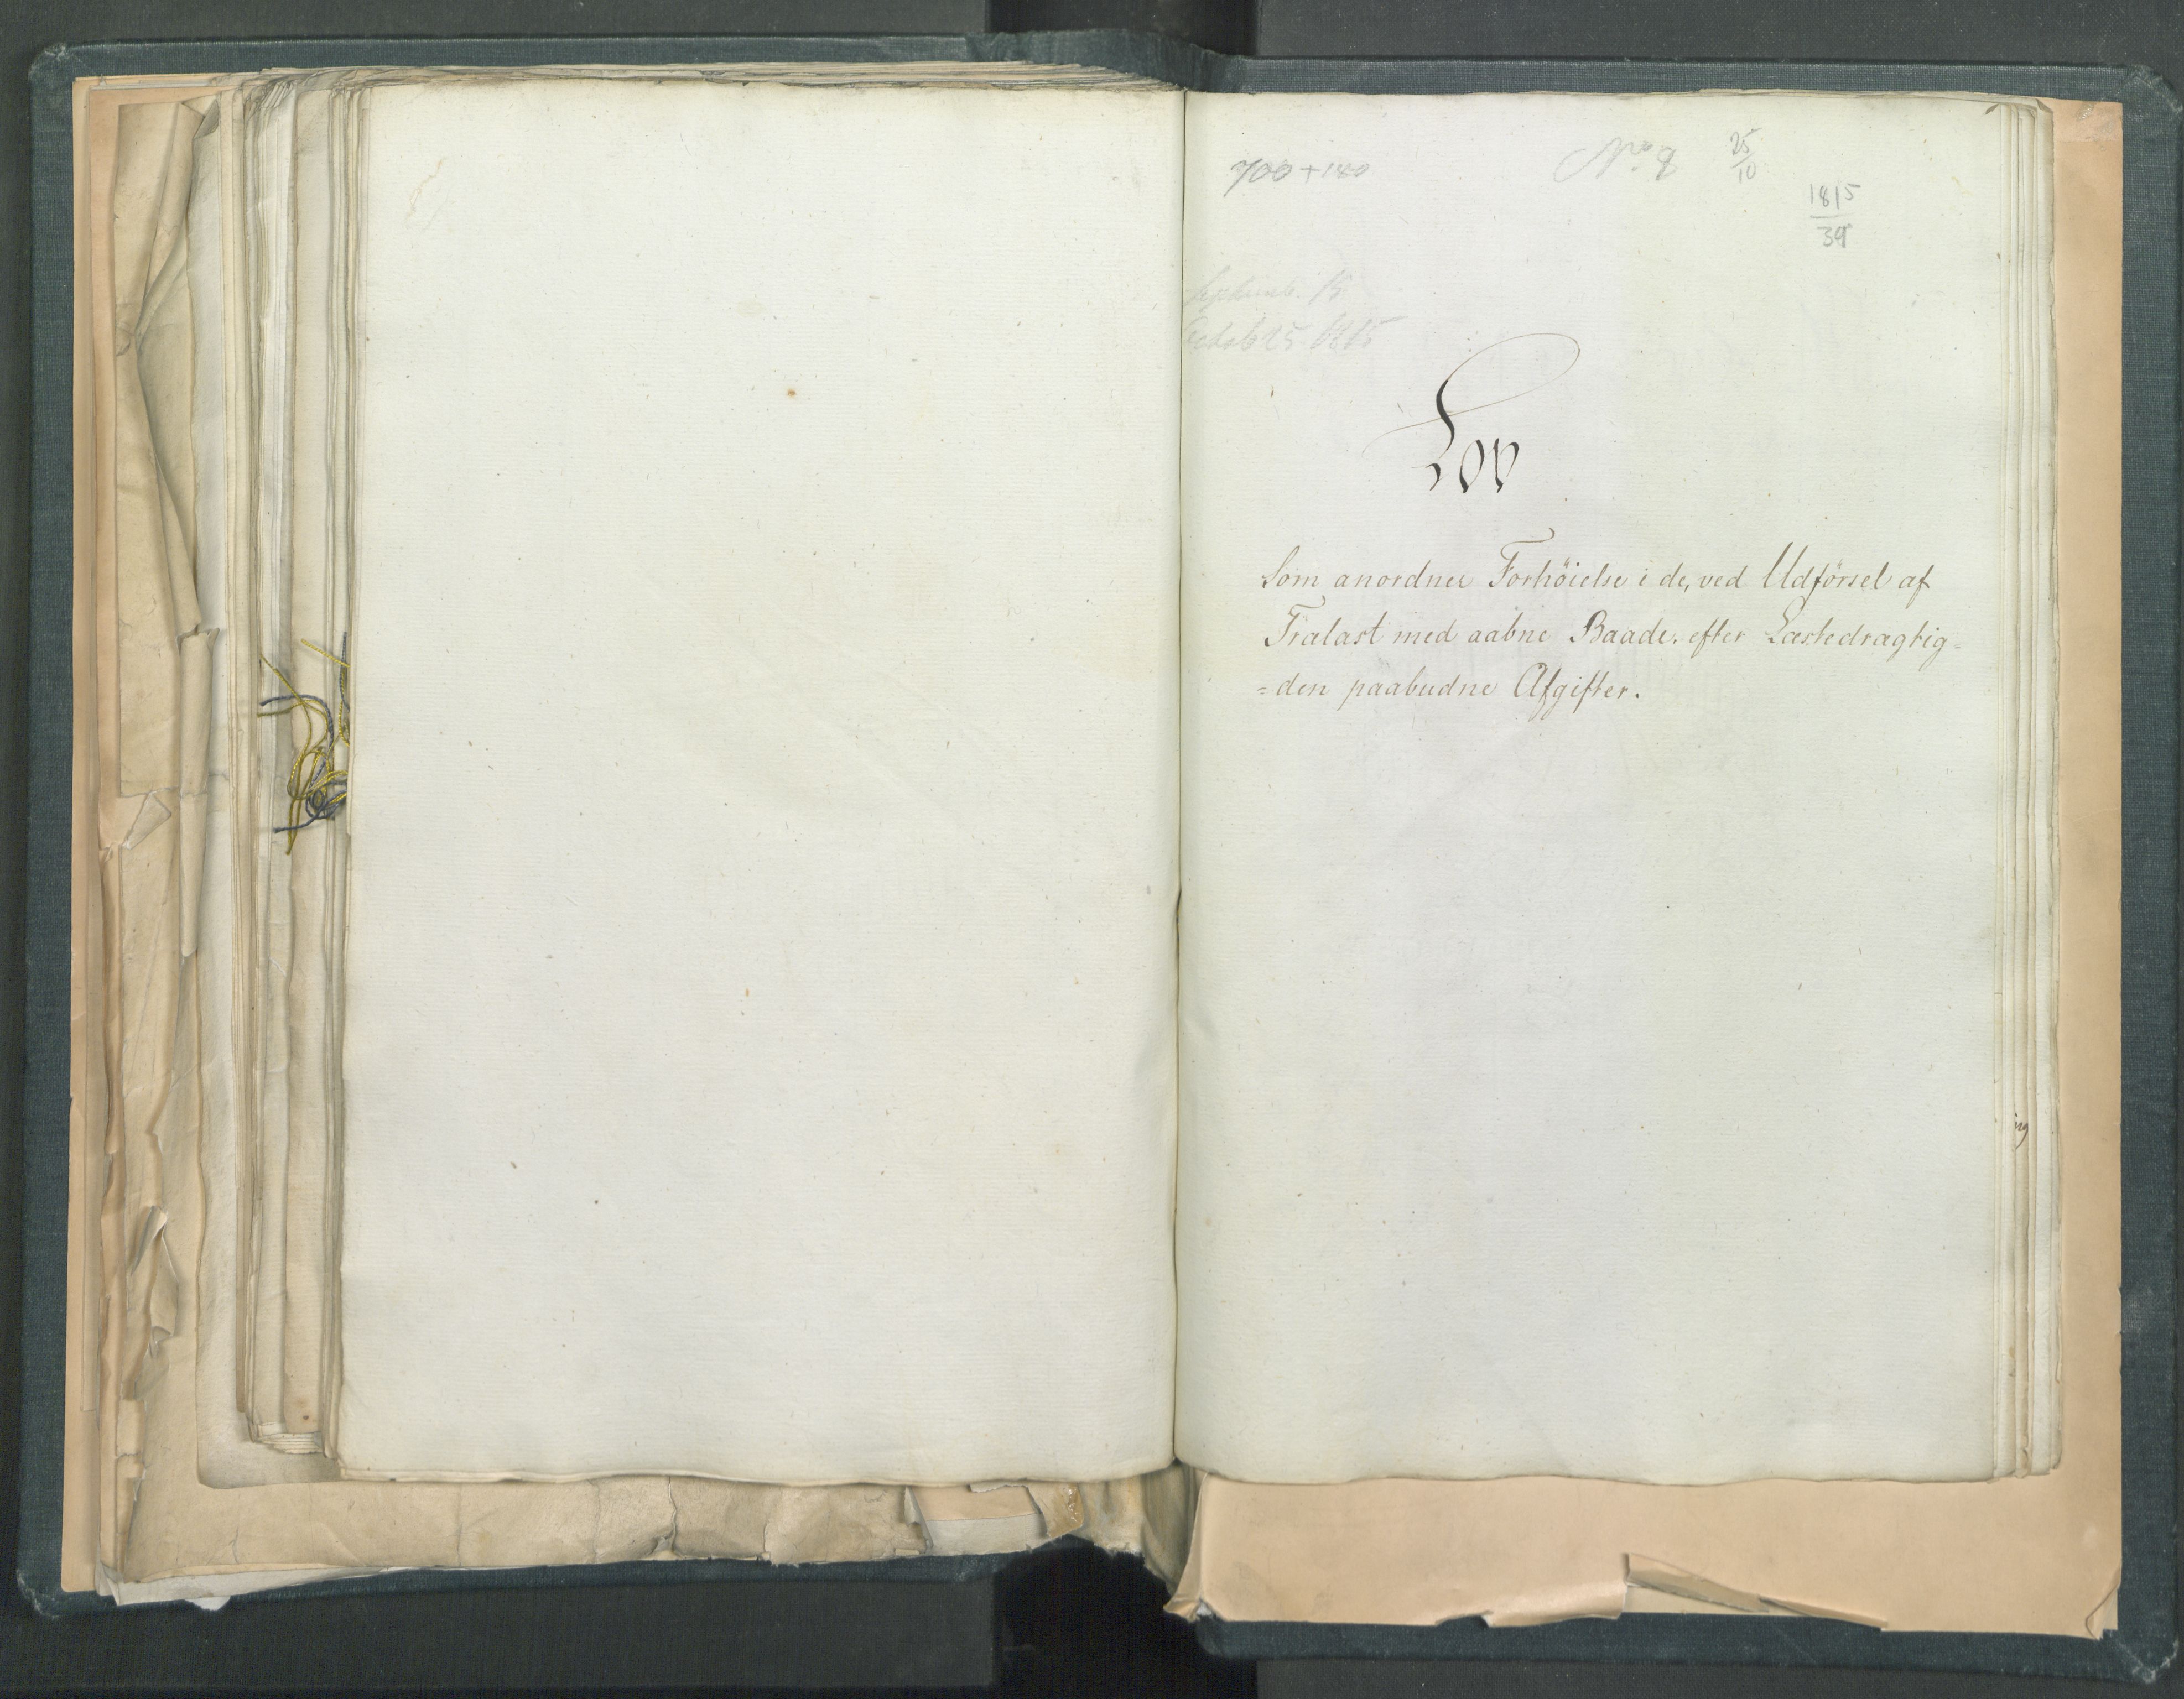 700+180
No. 8
25
10
1815
39
Septemb. 15
Octob 25 1815
Lov
Som anordner Forhöielse i de, ved Udförsel af
Trælast med aabne Baade, efter Læstedragtig=
=den paabudne Afgifter.